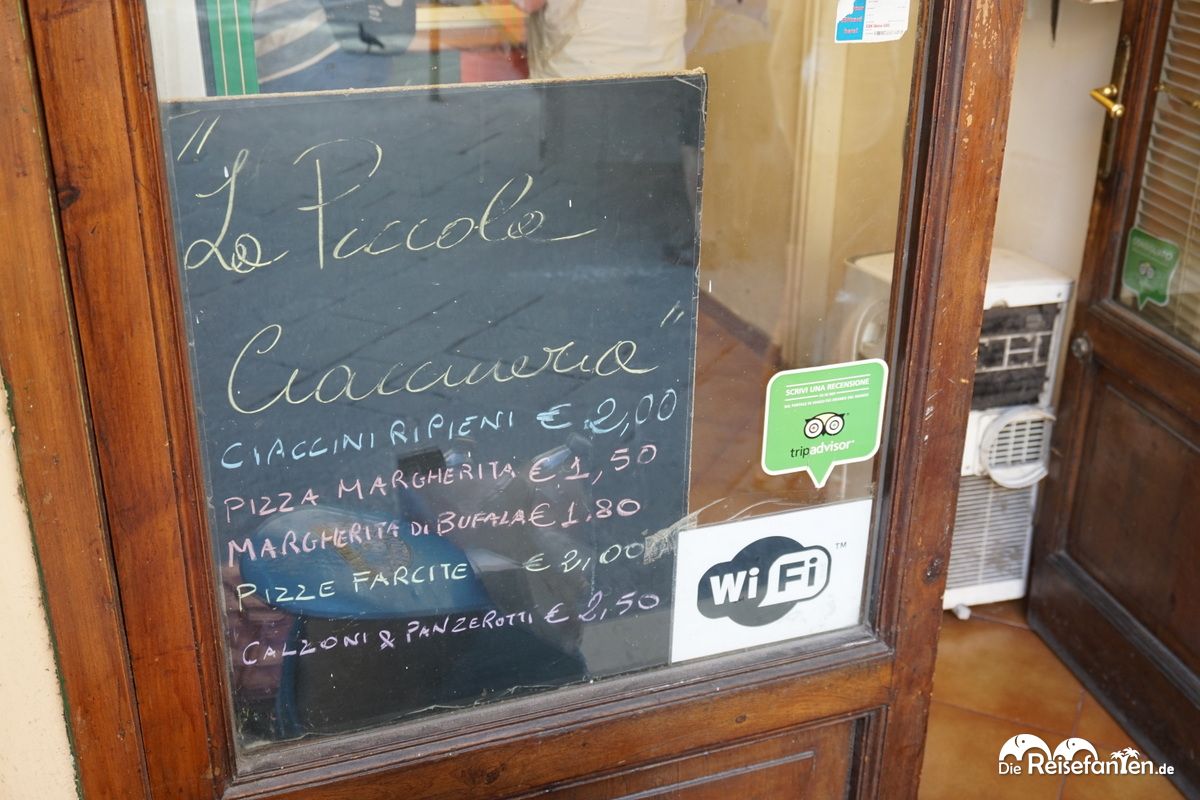 "La Piccola
Ciaccineria"
CIACCINI RIPIENI € 2,00
PIZZA MARGHERITA € 1,50
MARGHERITA DI BUFALA € 1.80
PIZZE FARCITE € 2,00
CALZONI & PANZEROTTI € 2,50
SCRIVI UNA RECENSIONE
tripadvisor
Wi Fi™
Die Reisefanten.de